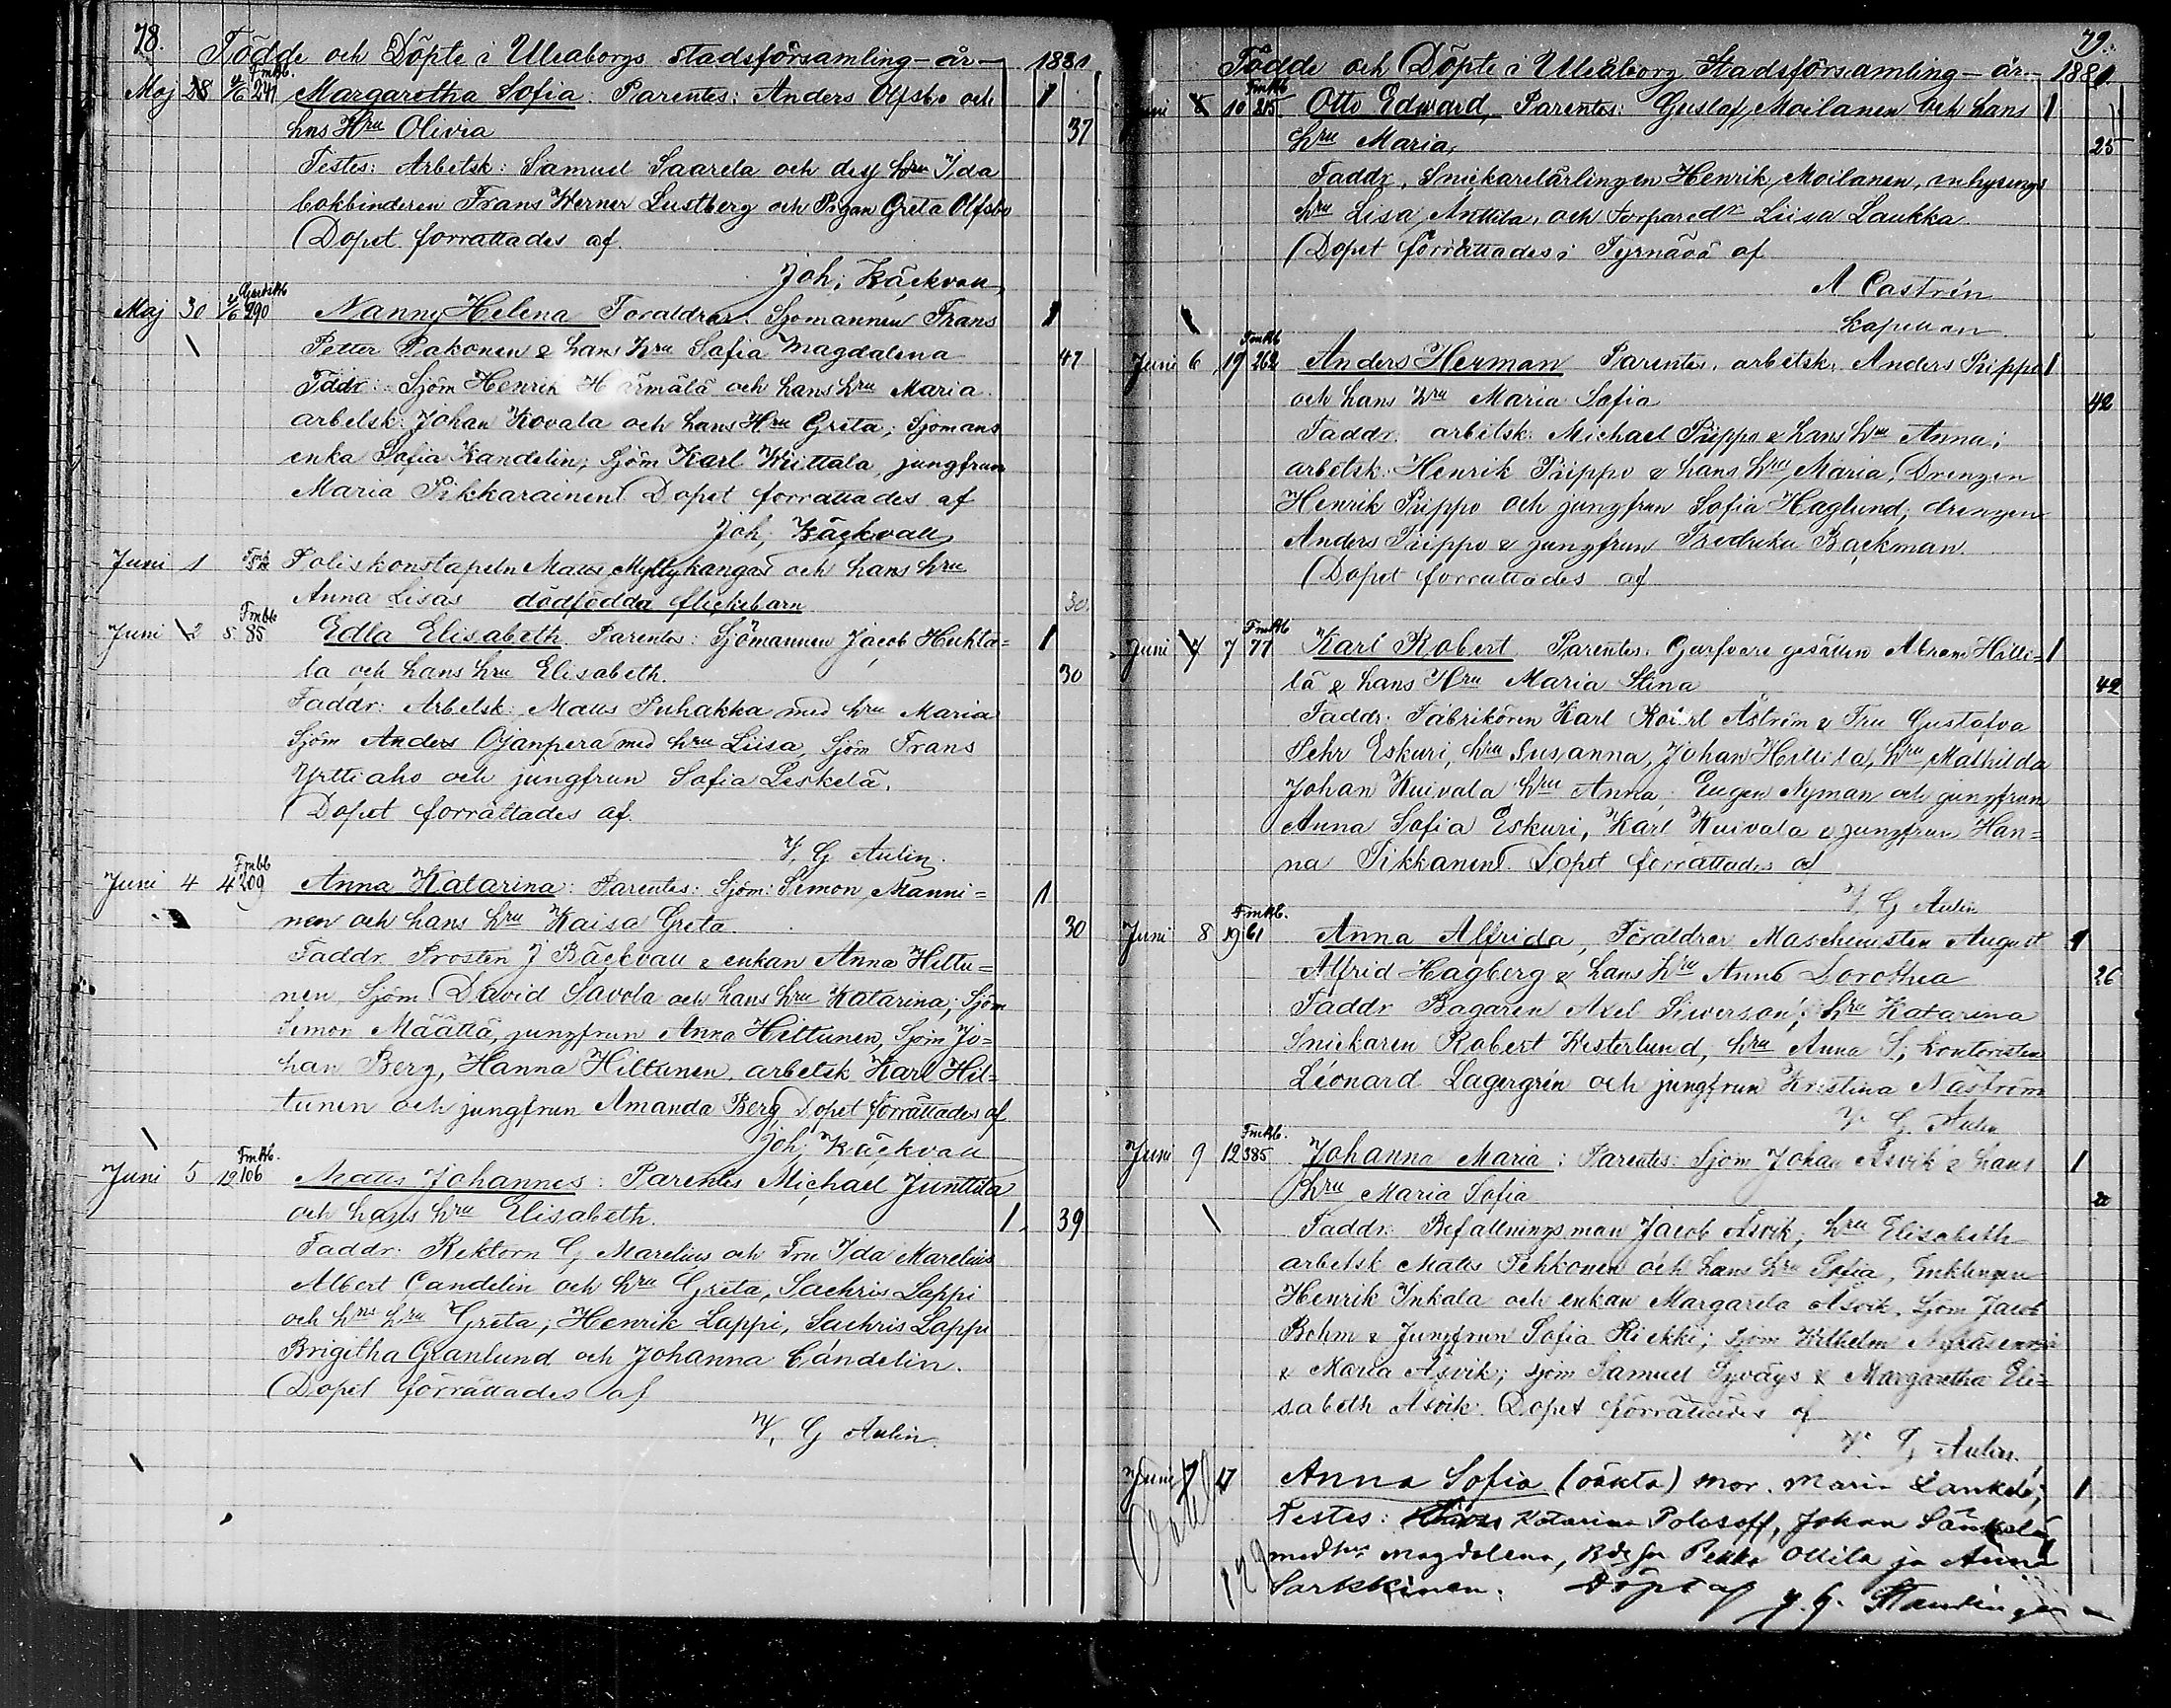 78.
Födde och Döpte i Uleaborgs stadsförsamling - år - 1881
Maj 28 4/6 Fmbb. 241 Margaretha Sofia: Parentes: Anders Olfsbo och 1
hns Hru Olivia 37
Testes: Arbetsk: Samuel Saarela och desf hru Ida
bokbinderen Frans Werner Lustberg och Pigan Greta Olfsbo
Dopet forrattades af
Joh; Bäckvall
Maj 30 290 Nanny Helena Foraldrar. Sjomannen Frans 1
Petter Pakonen & hans hru Sofia Magdalena 47
Fddr: Sjöm Henrik Härmälä och hans hru Maria.
arbetsk: Johan Kovala och hans Hru Greta; Sjomans
enka Sofia Kandelin, Sjöm Karl Kuittala jungfrun
Maria Pikkarainen Dopet forrattades af
Joh; Bäckvall
Juni 1 Poliskonstapeln Matts Myllykangas och hans hru
Anna Lisas dödfödda flickebarn 30
Juni 2 5 Fmbb 85 Edla Elisabeth Parentes: Sjömannen Jacob Huhta= 1
la och hans hru Elisabeth. 30
Faddr: Arbetsk: Matts Puhakka med hru Maria
Sjöm Anders Ojanpera med hru Liisa, Sjöm Frans
Yrttiaho och jungfrun Sofia Leskelä.
Dopet forrättades af.
V. G Aulin.
Juni 4 4 Fmbb 209 Anna Katarina: Parentes: Sjöm: Simon Manni= 1
nen och hans hru Kaisa Greta. 30
Faddr Prosten J Bäckvall & enkan Anna Hiltu=
nen, Sjöm David Savola och hans hru Katarina; Sjöm
Simon Määttä, jungfrun Anna Hiltunen, Sjöm Jo=
han Berg, Hanna Hiltunen, arbetsk Karl Hil=
tunen och jungfrun Amanda Berg, Dopet förrättades af
Joh; Bäckvall
Juni 5 12 Fmbb. 106 Matts Johannes: Parentes Michael Junttila
och hans hru Elisabeth. 1 39
Faddr: Rektorn G Marelius och Fru Ida Marelius
Albert Candelin och hru Greta, Sachris Lappi
och hns hru Greta, Henrik Lappi, Sachris Lappi
Brigitha Granlund och Johanna Candelin.
Dopet förrättades af
V. G Aulin.
79.
Födde och Döpte i Uleåborg Stadsförsamling - år - 1881.
Juni 5 10 Fmbb 215 Otto Edward, Parentes: Gustaf Moilanen och hans 1
hru Maria, 25
Faddr, Snickarelärlingen Henrik Moilanen, inhysings
hru Lisa Anttila, och Liisa Laukka
Dopet förrättades i Tyrnävä af
A Castrén
kapellan
Juni 6 19 Fmbb 262 Anders Herman Parentes, arbetsk, Anders Piippo 1
och hans hru Maria Sofia 42
Faddr. arbetsk. Michael Piippo & hans hru Anna;
arbetsk. Henrik Piippo & hans hru Maria, Drengen
Henrik Piippo och jungfrun Sofia Haglund, drengen
Anders Piippo & jungfrun Fredrika Backman.
Dopet forrattades af
Juni 7 7 Fmbb 77 Karl Robert Parentes. Garfvere gesällen Abram Hilli= 1
lä & hans Hru Maria Stina 42
Faddr. Fabrikören Karl Åström & Fru Gustafva
Pehr Eskuri, hru Susanna, Johan Hillilä, hru Mathilda
Johan Kuivala hru Anna, Eugen Nyman och jungfrun
Anna Sofia Eskuri, Karl Kuivala & jungfrun Han=
na Tikkanen. Dopet förrättades af
V. G Aulin
Juni 8 19 Fmbb. 61 Anna Alfrida, Föraldrar Maschinisten August 1
Alfrid Hagberg & hans hru Anna Dorothea 26
Faddr Bagaren Axel Siwerson; hru Katarina
Snickaren Robert Westerlund, hru Anna S; kontoristen
Léonard Lagergrén och jungfrun Kristina Näström
V. G. Aulin
Juni 9 12 Fmbb. 385 Johanna Maria: Parentes: Sjöm Johan Åsvik & hans 1
hru Maria Sofia
Faddr: Befallningsman Jacob Åsvik, hru Elisabeth
arbetsk Matts Pehkonen och hans hru Sofia, Enklingen
Henrik Inkala och enkan Margareta Åsvik, Sjöm Jacob
Bohm & Jungfrun Sofia Riekki; sjom Wilhelm
& Maria Åsvik; sjöm Samuel Syväys & Margaretha Eli=
sabeth Åsvik. Dopet förrättades af
V. G Aulin.
Juni 7 17 Anna Sofia (oäkta) Mor. Maria 1
Testes: Katarina Polosoff, Johan
med hru Magdalena, Pekka Ottila ja Anna
Sarkkinen. Döpt af